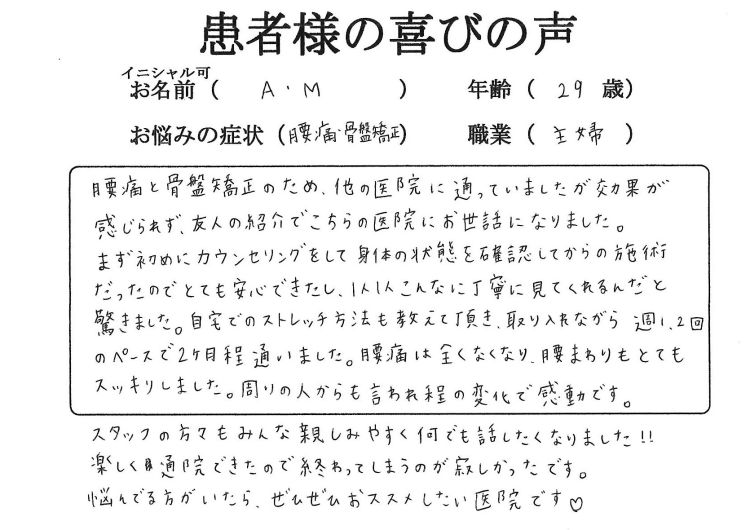 患者様の喜びの声
イニシャル可
お名前（ A・M ） 年齢（ 29 歳）
お悩みの症状（腰痛・骨盤矯正） 職業（ 主婦 ）
腰痛と骨盤矯正のため、他の医院に通っていましたが効果が
感じられず、友人の紹介でこちらの医院にお世話になりました。
まず初めにカウンセリングをして身体の状態を確認してからの施術
だったのでとても安心できたし、1人1人こんなに丁寧に見てくれるんだと
驚きました。自宅でのストレッチ方法も教えて頂き、取り入れながら 週1、2回
のペースで2ヶ月程通いました。腰痛は全くなくなり、腰まわりもとても
スッキリしました。周りの人からも言われ程の変化で感動です。
スタッフの方々もみんな親しみやすく何でも話したくなりました!!
楽しく通院できたので終わってしまうのが寂しかったです。
悩んでる方がいたら、ぜひぜひおススメしたい医院です♡